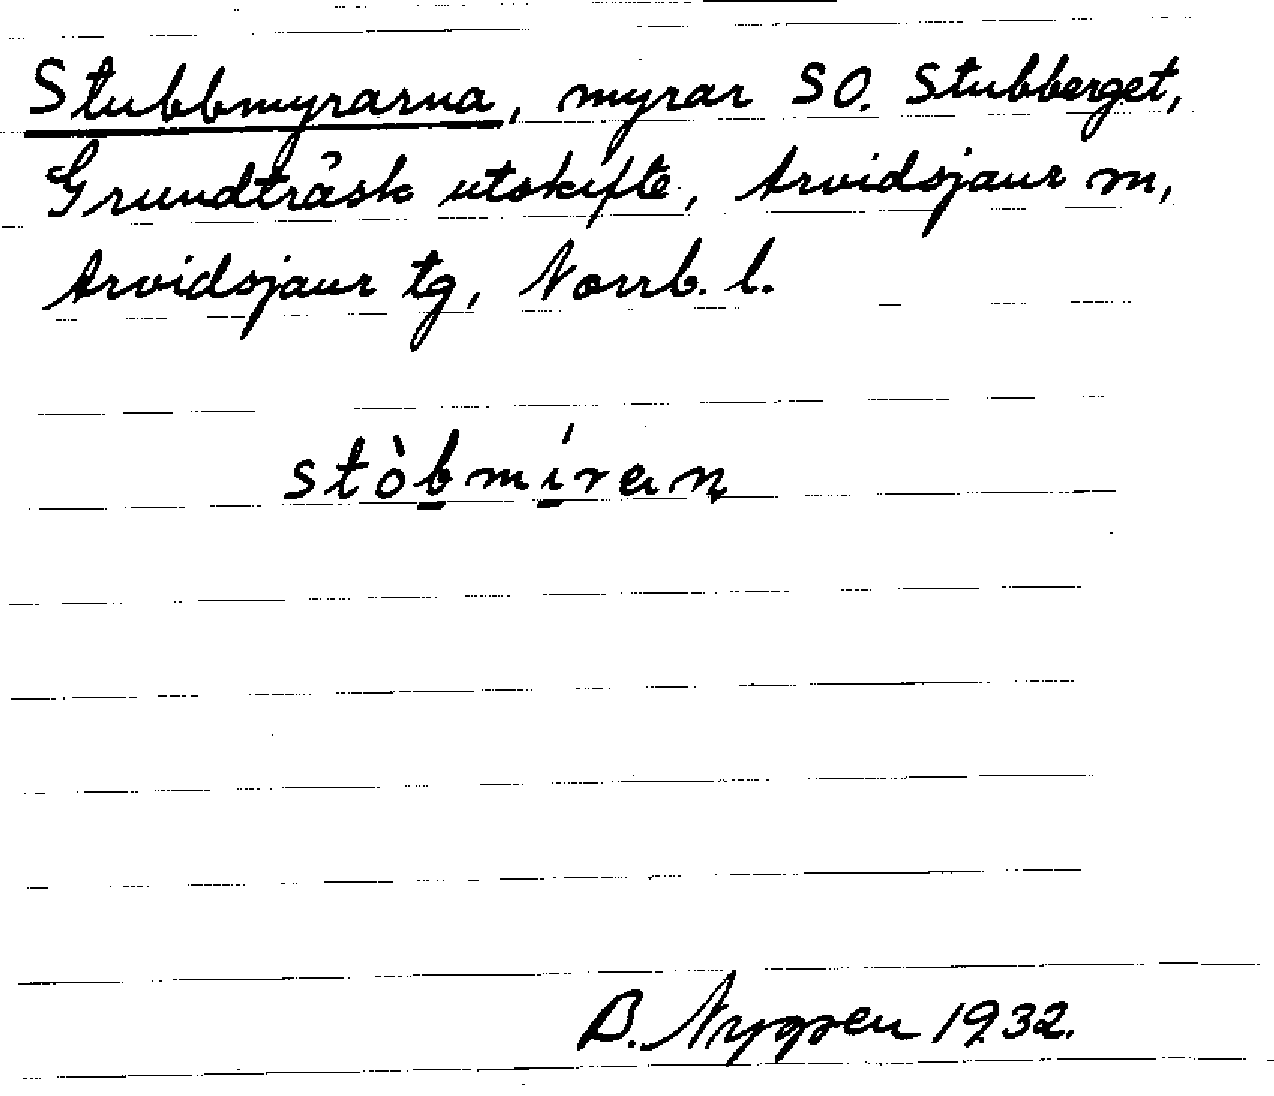 Stubbmyrarna, myrar SO. Stubberget,
Grundträsk utskifte, Arvidsjaur m,
Arvidsjaur tg, Norrb. l.
stòbmíran
B. Nygren 1932.